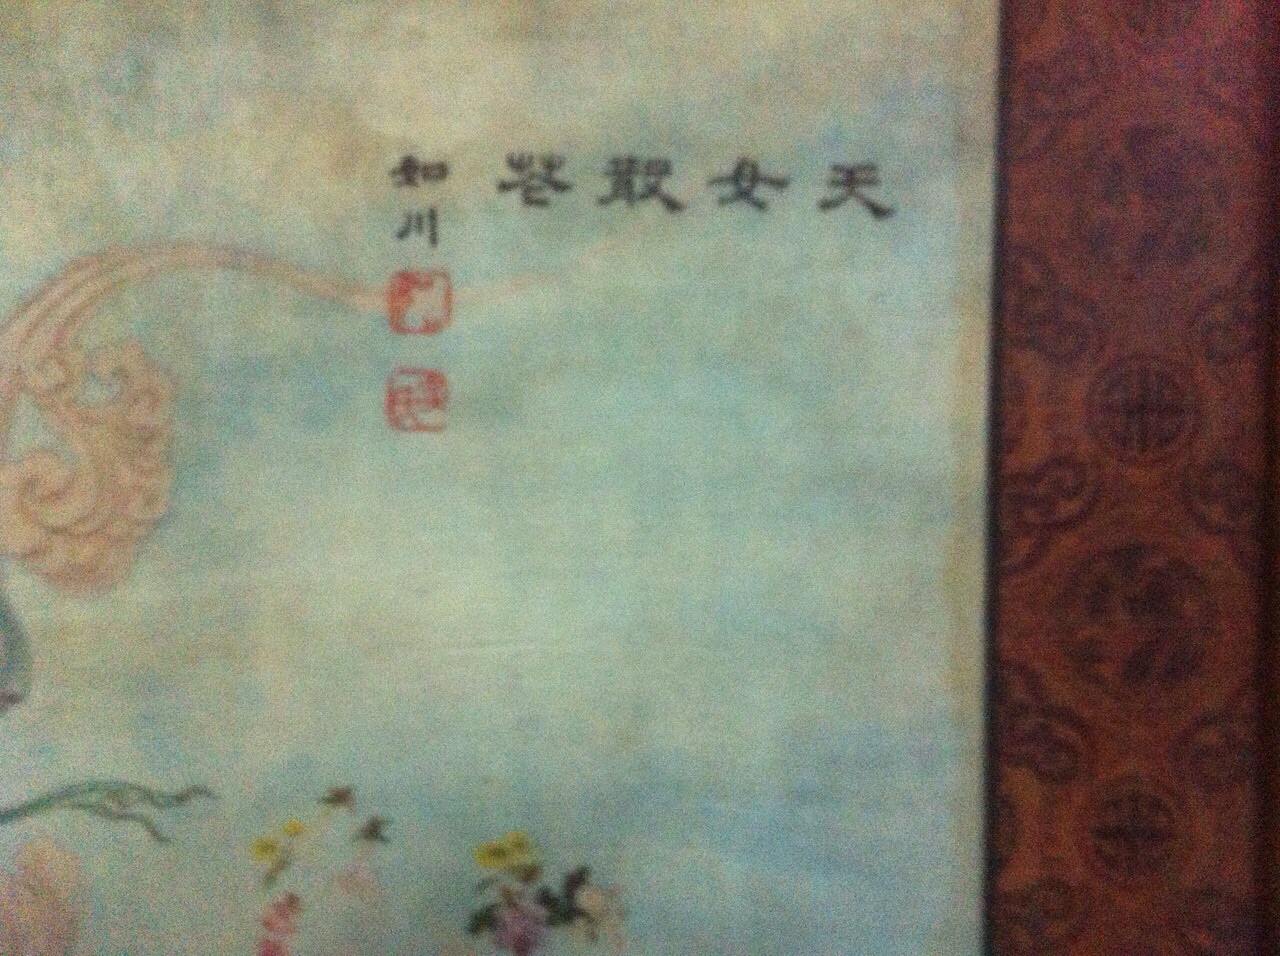 天女散花
如川